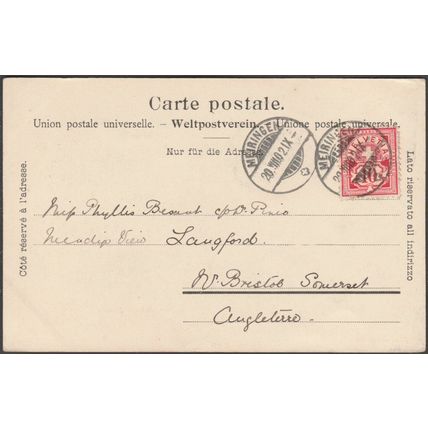 Carte postale.
Union postale universelle. – Weltpostverein. – Unione postale universale.
Nur für die Adresse.
MEIRINGEN
20.VIII.02.IX
MEIRINGEN
20.VIII.02.IX
HELVETIA
10
Côté réservé à l'adresse.
Lato riservato all indirizzo
Miss Phyllis Besant c/o Dr.
Mendip View Langford.
Nr Bristol Somerset
Angleterre.